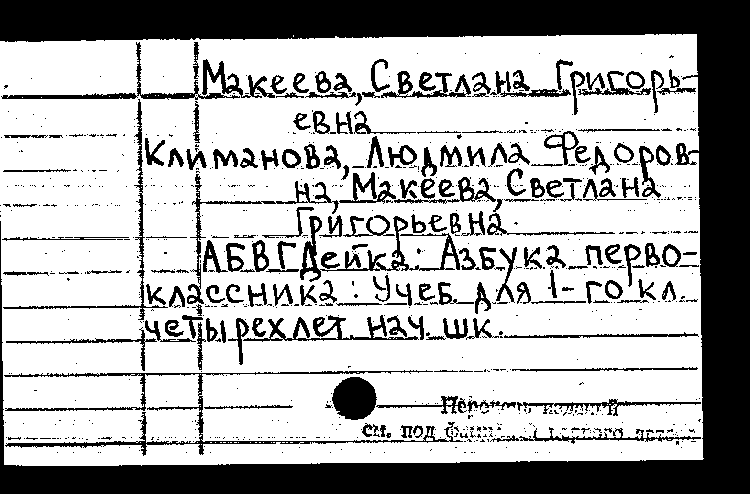 Макеева, Светлана Григорь-
евна
Климанова, Людмила Федоров-
на, Макеева, Светлана
Григорьевна.
АБВГДейка: Азбука перво-
классника: Учеб. для 1-го кл.
четырехлет. нач. шк.
Перечень изданий
см. под фамилией первого автора